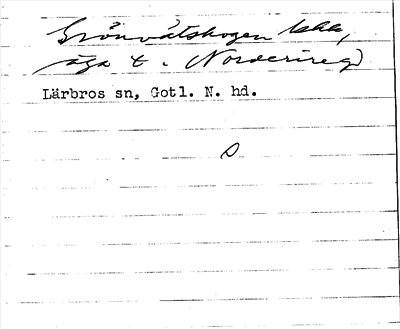 Grönvätskogen
äga t. Norderire
Lärbros sn, Gotl. N. hd.